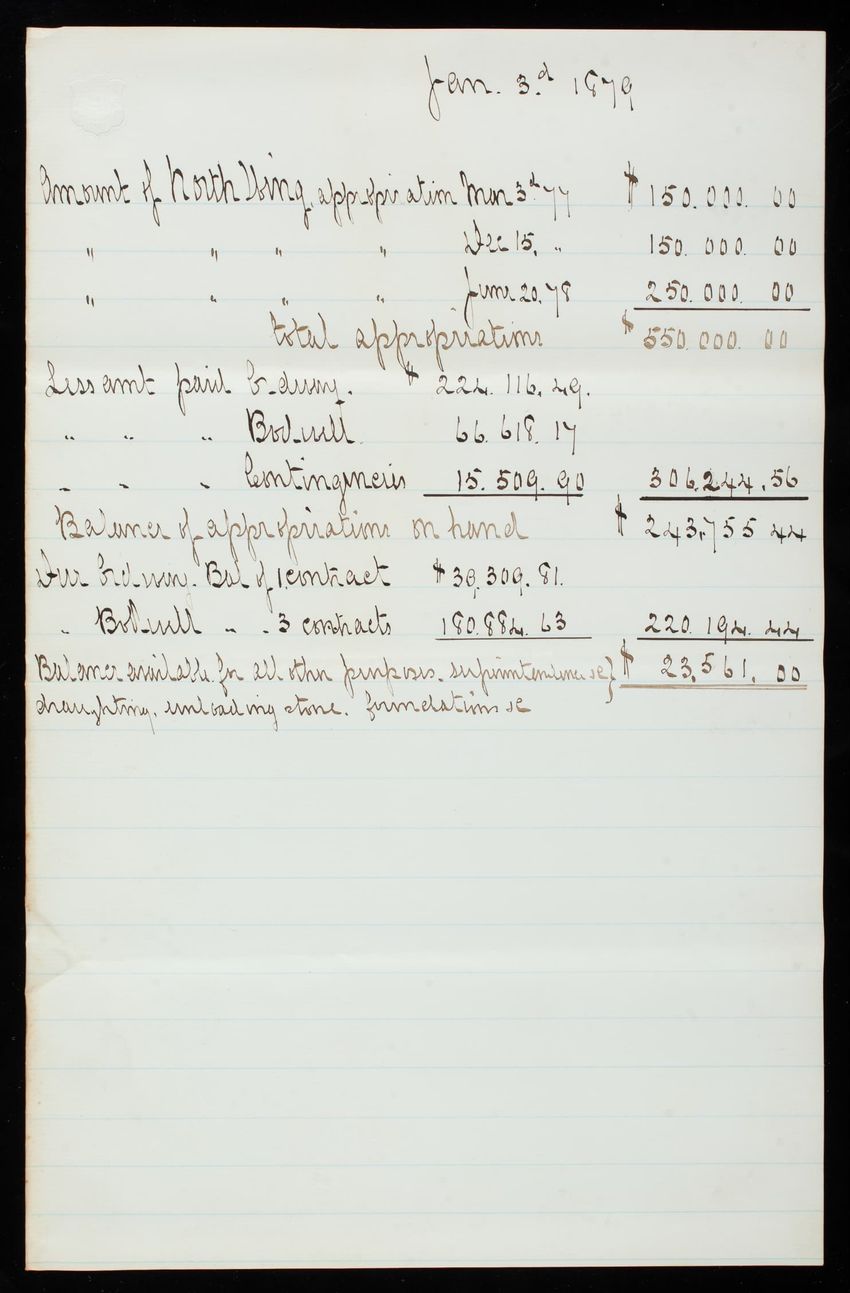 Jan. 3.d 1879
Amount of North Wing appropriation Mar 3d 77 $ 150.000. 00
" " " " Dec 15, " 150. 000. 00
" " " " June 20, 78 250.000. 00
total appropriations $ 550.000. 00
Less amt paid $ 224. 116. 49.
" " " Bodwell 66. 618. 17
" " " Contingencies 15. 509. 90 306,244.56
Balance of appropriations on hand $ 243,755 44
Due Bal of 1. contract $ 39,309. 81.
" Bodwell " " 3 contracts 180.884. 63 220. 194. 44
Balance available for all other purposes. superintendence &c } $ 23,561. 00
draughting, unloading stone. foundations &c